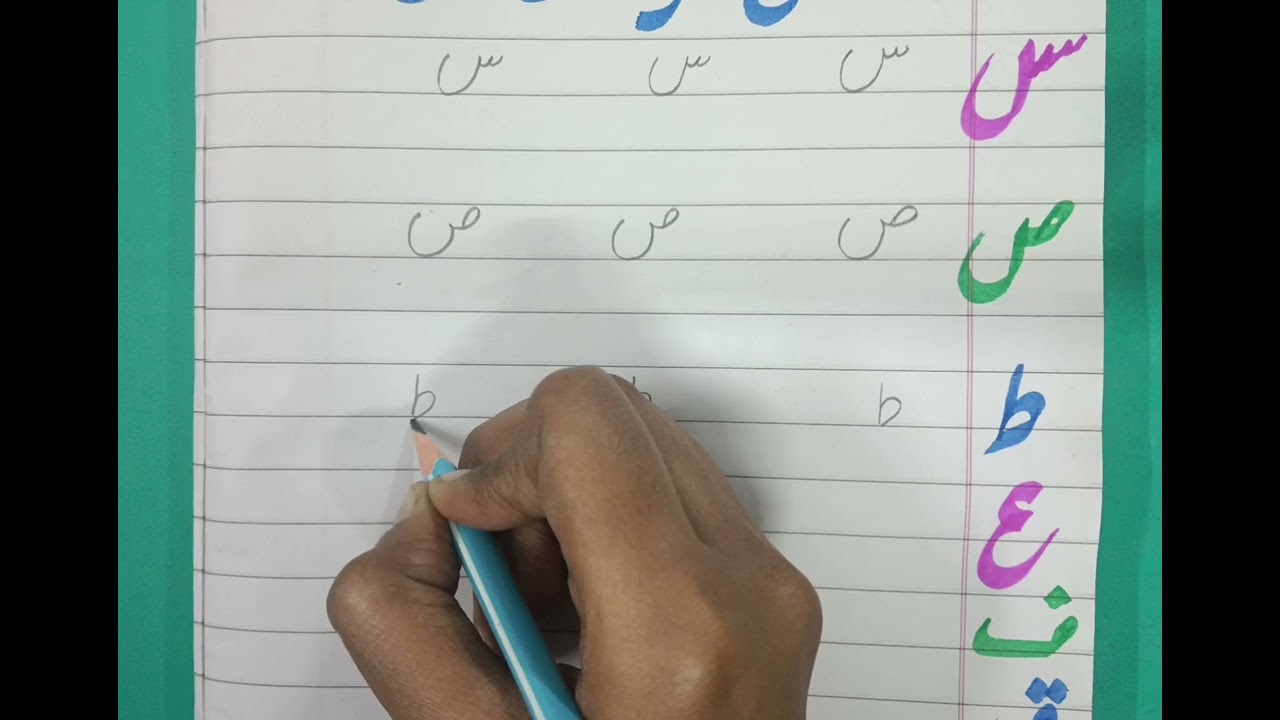 س س س س
ص ص ص ص
ط ط ط ط
ع
ف